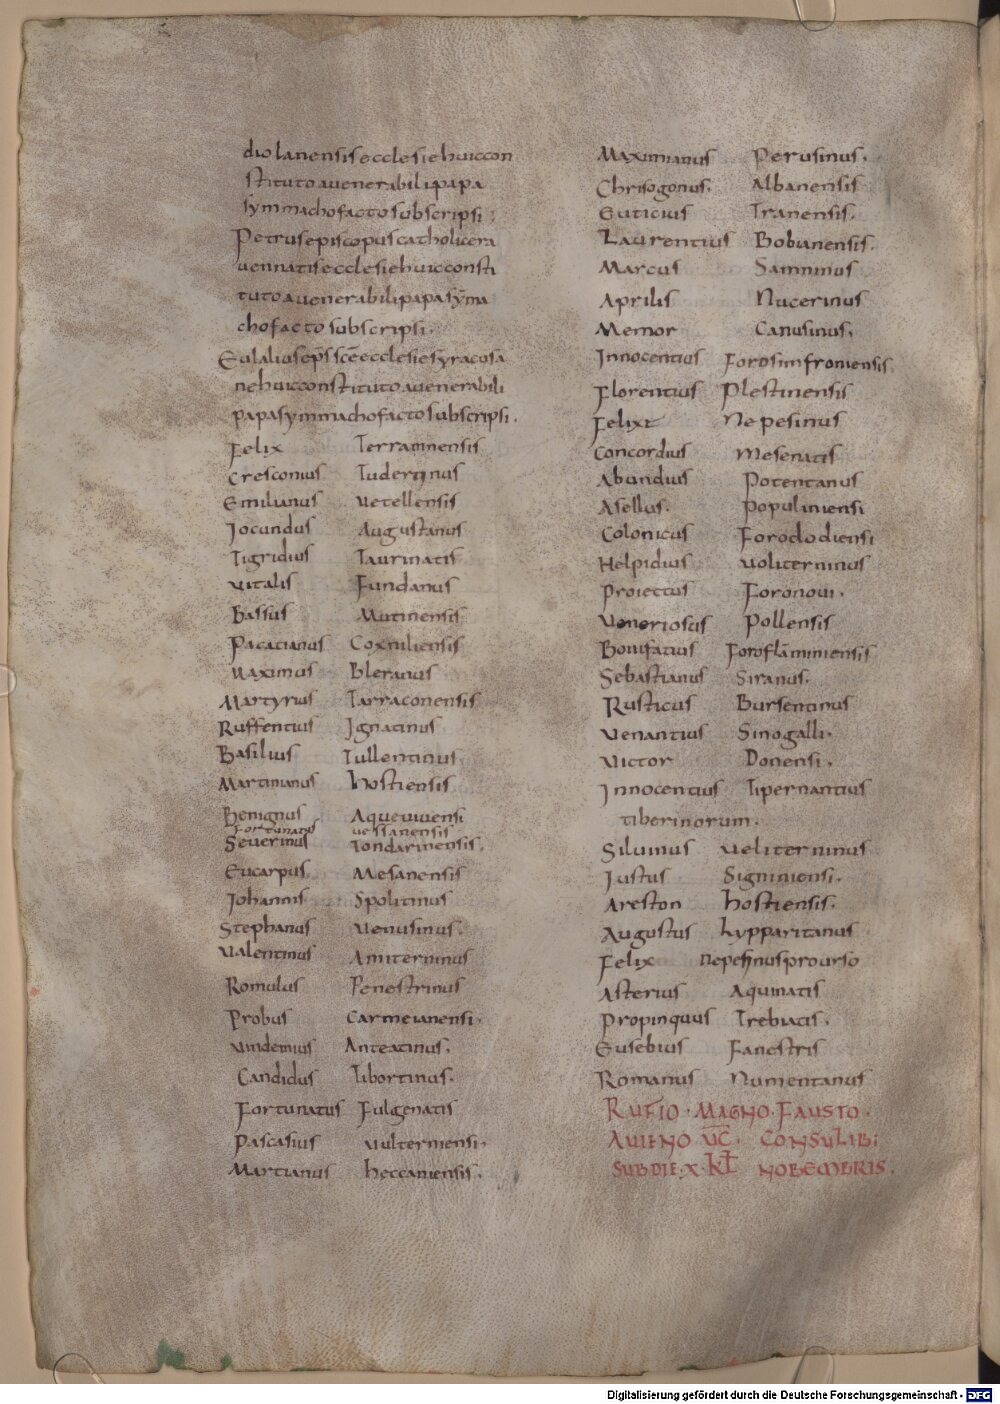 diolanensis ecclesie huic con
stituto a venerabili papa
symmacho facto subscripsi;
Petrus episcopus catholice ra
vennatis ecclesie huic consti
tuto a venerabili papa sȳma
cho facto subscripsi.
Eulalius ep̄s sc̄e ecclesie syracusa
ne huic constituto a venerabili
papa symmacho facto subscripsi.
Felix Terracinensis
Cresconius Tudertinus
Emilianus Vetellensis
Jocundus Augustanus
Tigridius Taurinatis
Vitalis Fundanus
Bassus Mutinensis
Pacatianus Coxmiliensis
Maximus Bleranus
Martyrus Tarraconensis
Ruffentius Ignatinus
Basilius Tullentinus
Martinianus hostiensis
Benignus Aquevivensi
Fortunatus vessanensis
Severinus Tondarinensis.
Eucarpus. Mesanensis
Johannis Spolitinus
Stephanus Venusinus.
Valentinus Amiterninus
Romulus Penestrinus
Probus Carmeianensi.
Vindemius Anteatinus.
Candidus Tibortinus.
Fortunatus Fulgenatis
Pascasius Vulternensi.
Martianus heccaniensis.
Maximianus Perusinus.
Chrisogonus. Albanensis
Euticius Tranensis.
Laurentius Bobianensis.
Marcus Samninus
Aprilis Nucerinus
Memor Canusinus.
Innocentius Forosimfroniensis.
Florentius Plestinensis
Felixt Nepesinus
Concordius Mesenatis
Abundius Potentanus
Asellus. Populiniensi
Colonicus Forododiensi
Helpidius Voliterninus
Proiectus Foronovi.
Veneriosus Pollensis
Bonifatius Foroflāminiensis
Sebastianus Siranus.
Rusticus Bursentinus
Venantius Sinogalli.
Victor Donensi.
Innocentius Tipernantius
tiberinorum.
Silvinus Veliterninus
Justus Signiniensi.
Areston hostiensis.
Augustus Lypparitanus
Felix Nepesinus pro urso
Asterius Aquinatis
Propinquus Trebiatis.
Eusebius Fanestris
Romanus Numentanus
RUFIO · MAGNO · FAUSTO ·
AVIENO V̄C̄. CONSULIB;
SUB DIE. X. KL̄ NOBEMBRIS.
Digitalisierung gefördert durch die Deutsche Forschungsgemeinschaft - DFG